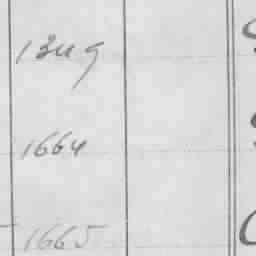 1349
1664
1665